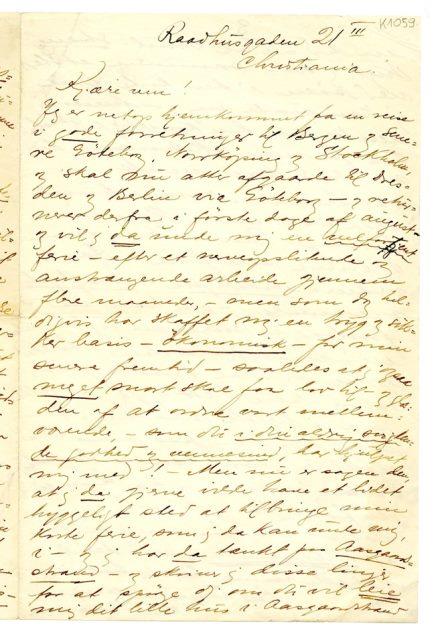 K1059
Raadhusgaden 21 III
Christiania.
Kjære ven!
Jeg er netop hjemkommet fra en reise
i gode forretninger til Bergen og sene-
re Göteborg, Norrköping og Stockholm,
og skal nu atter afgaarde til Dres-
den og Berlin via Göteborg – og retur-
nerer derfra i förste dage af august
og vil j da unde mig en
ferie – efter et nerveopslitende og
anstrængende arbeide gjennem
flere maaneder, – men som dog hel-
digvis har skaffet mig en tryg og sik-
ker basis – ökonomisk – for min
senere fremtid – saaledes at j
meget snart skal faa lov til og glæ-
den af at ordne vort mellem-
værende, – som du i din aldrig
de godhed og vennesind, har hjulpet
mig med! – Men nu er sagen den,
at j da gjerne vilde have et lidet
hyggeligt sted at tilbringe min
korte ferie, som j da kan unde mig,
i – og j har da tænkt paa Aasgaard-
strand – og skriver j disse linjer
for at spörge dig om du vil leie
mig dit lille hus i Aasgaardstrand